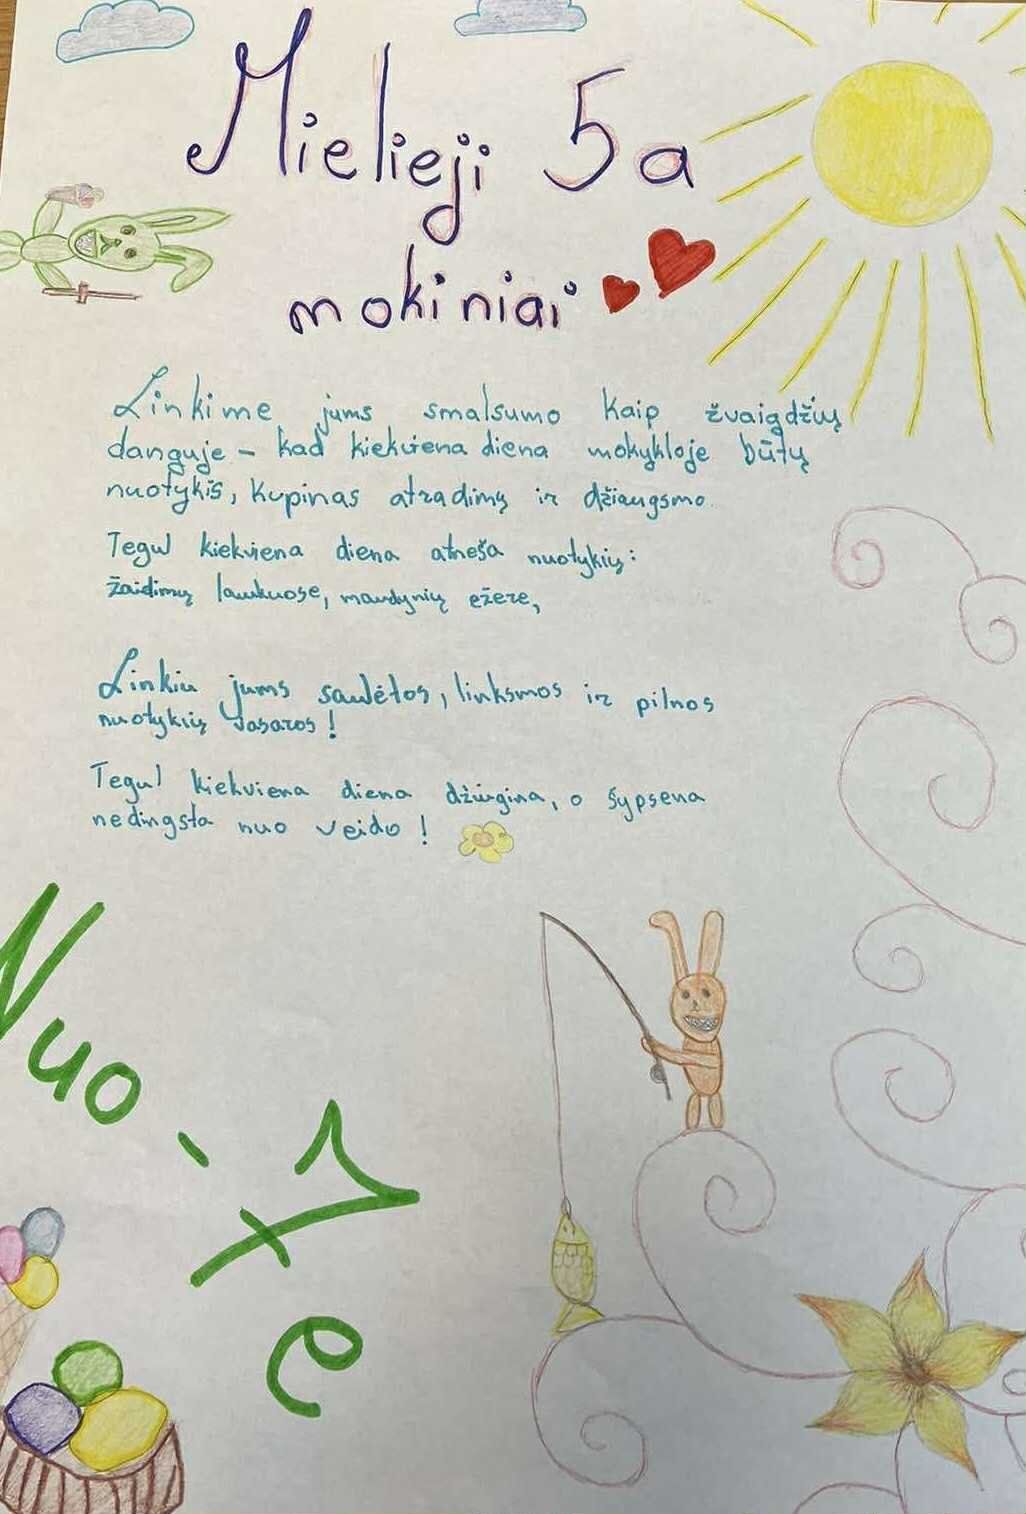 Mielieji 5a
mokiniai
Linkime jums smalsumo kaip žvaigdžių
danguje - kad kiekviena diena mokykloje būtų
nuotykis, kupinas atradimų ir džiaugsmo.
Tegul kiekviena diena atneša nuotykių:
žaidimų laukuose, maudynių ežere,
Linkiu jums saulėtos, linksmos ir pilnos
nuotykių vasaros!
Tegul kiekviena diena džiugina, o šypsena
nedingsta nuo veido!
Nuo - 7e